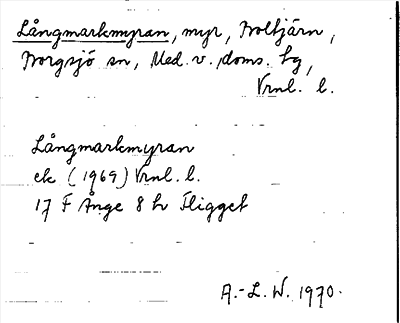 Långmarkmyran, myr, Boltjärn,
Borgsjö sn, Med. v. doms. tg,
Vrnl. l.
Långmarkmyran
ek (1969) Vrnl. l.
17 F Ånge 8 h Fligget
A.-L. W. 1970.